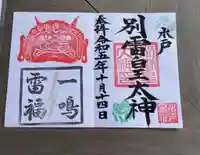 水戸
別雷皇太神
奉拝 令和五年十月十四日
一鳴
雷福